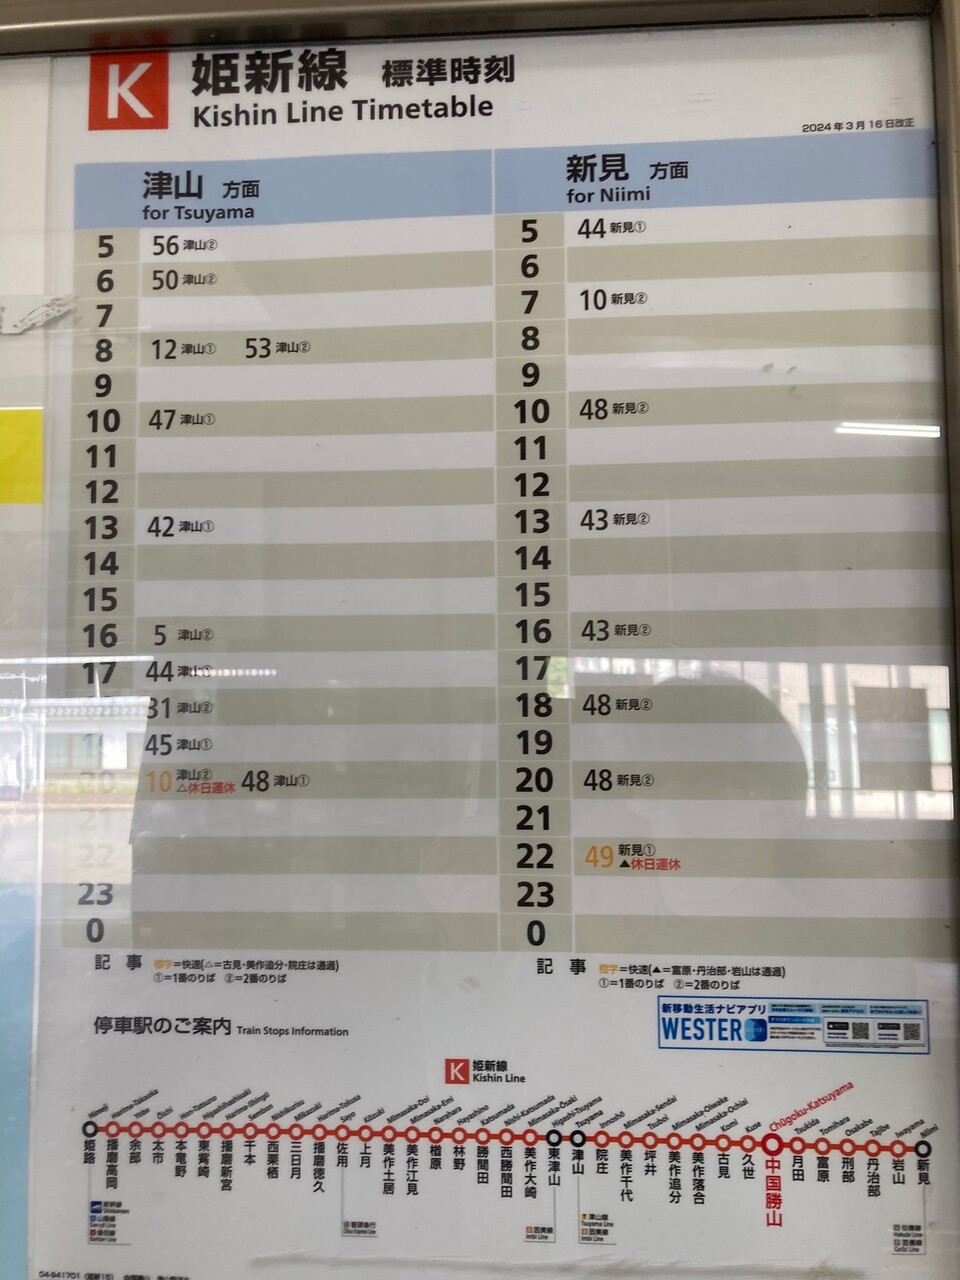 K 姫新線 標準時刻
Kishin Line Timetable
2024年3月16日改正
津山 方面
for Tsuyama
5 56 津山②
6 50 津山②
7
8 12 津山① 53 津山②
9
10 47 津山①
11
12
13 42 津山①
14
15
16 5 津山②
17 44 津山①
31 津山②
45 津山①
20 10 津山② △休日運休 48 津山①
21
22
23
0
記事 橙字=快速(△=古見・美作追分・院庄は通過)
①=1番のりば ②=2番のりば
新見 方面
for Niimi
5 44 新見①
6
7 10 新見②
8
9
10 48 新見②
11
12
13 43 新見②
14
15
16 43 新見②
17
18 48 新見②
19
20 48 新見②
21
22 49 新見① ▲休日運休
23
0
記事 橙字=快速(▲=富原・丹治部・岩山は通過)
①=1番のりば ②=2番のりば
新移動生活ナビアプリ
WESTER
停車駅のご案内 Train Stops Information
K 姫新線
Kishin Line
Himeji Harima-Takaoka Yobe Ōichi Hon-Tatsuno Higashihashisaki Harima-Shingū Sembon Nishikurisu Mikazuki Harima-Tokusa Sayo Kōzuki Mimasaka-Doi Mimasaka-Emi Narahara Hayashino Katsumada Nishi-Katsumada Mimasaka-Ōsaki Higashi-Tsuyama Tsuyama Innoshō Mimasaka-Sendai Tsuboi Mimasaka-Oiwake Mimasaka-Ochiai Komi Kuse Chūgoku-Katsuyama Tsukida Tomihara Osakabe Tajibe Iwayama Niimi
姫路 播磨高岡 余部 太市 本竜野 東觜崎 播磨新宮 千本 西栗栖 三日月 播磨徳久 佐用 上月 美作土居 美作江見 楢原 林野 勝間田 西勝間田 美作大崎 東津山 津山 院庄 美作千代 坪井 美作追分 美作落合 古見 久世 中国勝山 月田 富原 刑部 丹治部 岩山 新見
新幹線
Shinkansen
智頭急行
因美線
Imbi Line
津山線
Tsuyama Line
因美線
Imbi Line
伯備線
Hakubi Line
芸備線
Geibi Line